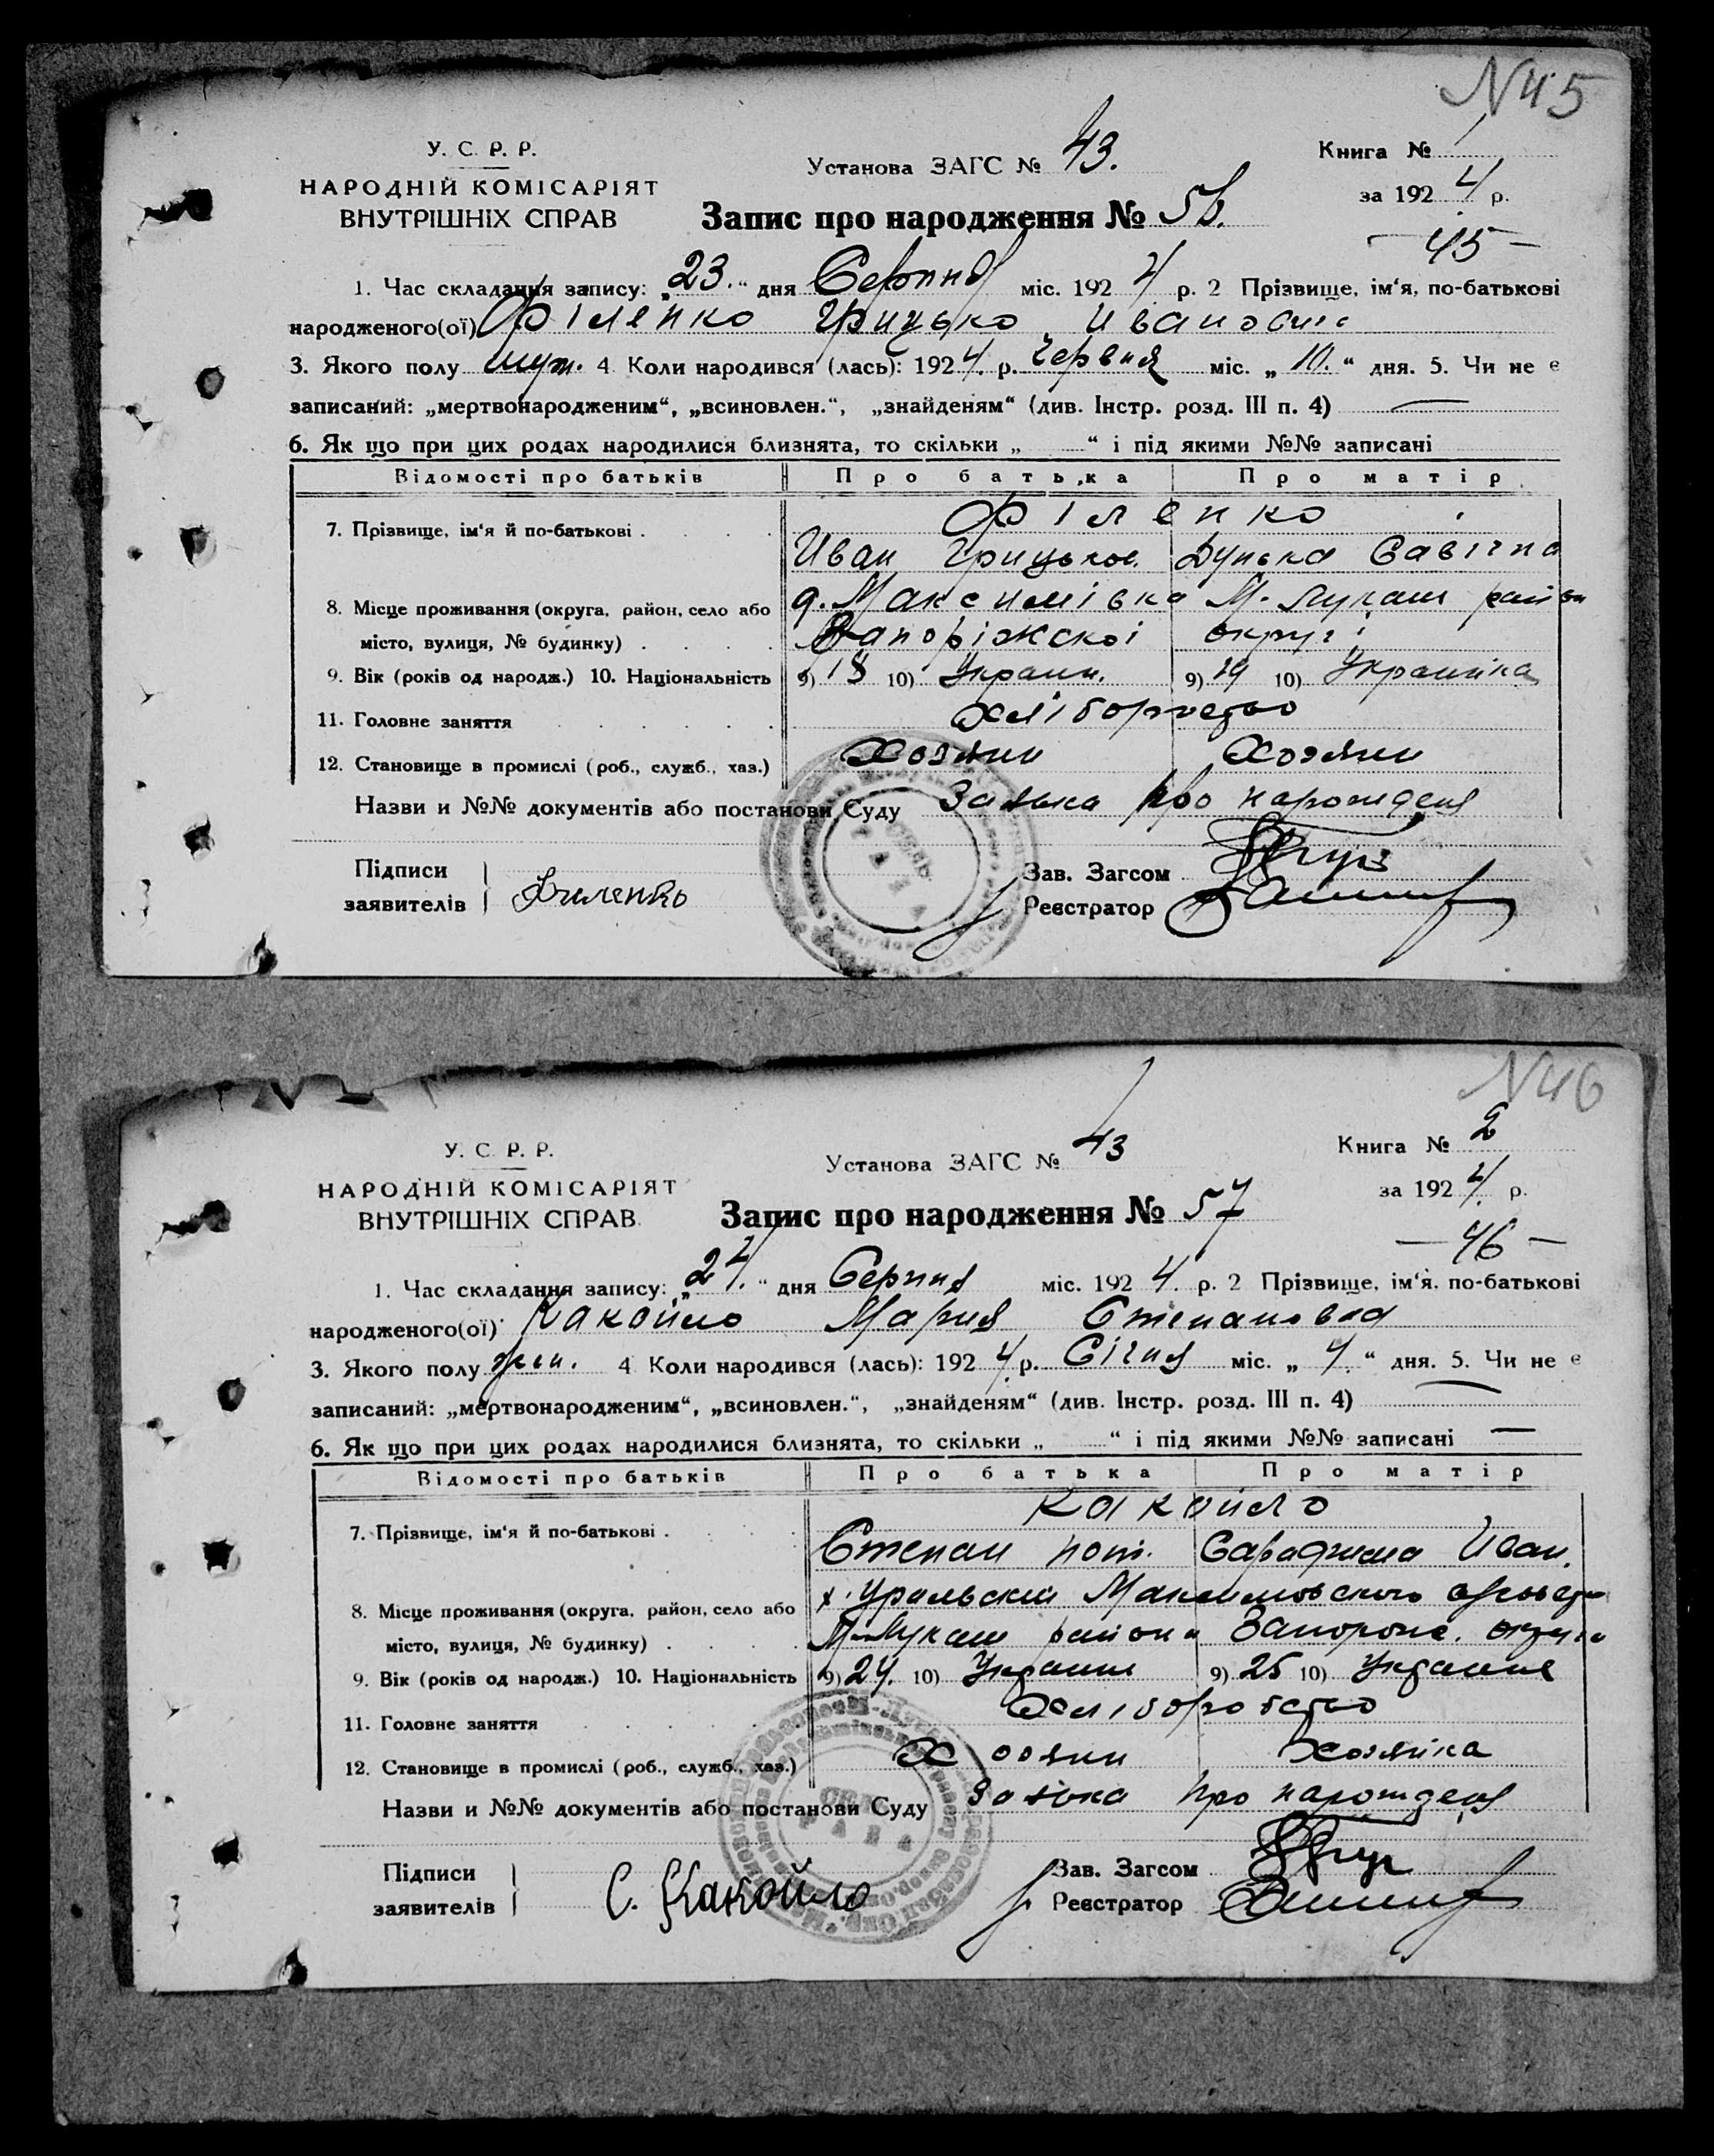 N45
У. С. Р. Р.
НАРОДНІЙ КОМІСАРІЯТ
ВНУТРІШНІХ СПРАВ
Установа ЗАГС № 43.
Книга №
за 1924 р.
Запис про народження № 56.
— 45 —
1. Час складання запису: „23.“ дня Серпня міс. 1924 р. 2 Прізвище, ім‘я, по-батькові
народженого(ої) Філенко Грицько Иванович
3. Якого полу муж. 4 Коли народився (лась): 1924. р. Червня міс. „10.“ дня. 5. Чи не є
записаний: „мертвонародженим“, „всиновлен.“, „знайденям“ (див. Інстр. розд. III п. 4) —
6. Як що при цих родах народилися близнята, то скільки „ “ і під якими №№ записані
Відомості про батьків Про батька Про матір
7. Прізвище, ім‘я й по-батькові . Філенко
Иван Грицьков. Дунька Савічна
8. Місце проживання (округа, район, село або д. Максимівка М-Лукаш район
місто, вулиця, № будинку) Запоріжскоі округі
9. Вік (років од народж.) 10. Національність 9) 18 10) Украин. 9) 19 10) Украинка
11. Головне заняття Хліборобство
12. Становище в промислі (роб., служб., хаз.) Хозяин Хозяин
Назви и №№ документів або постанови Суду Заявка про нарождення
Підписи
заявителів Филенко
Зав. Загсом
Реєстратор
N46
У. С. Р. Р.
НАРОДНІЙ КОМІСАРІЯТ
ВНУТРІШНІХ СПРАВ
Установа ЗАГС № 43
Книга № 2
за 1924. р.
Запис про народження № 57
— 46 —
1. Час складання запису: „24.“ дня Серпня міс. 1924. р. 2 Прізвище, ім‘я, по-батькові
народженого(ої) Какойло Мария Степановна
3. Якого полу жен. 4 Коли народився (лась): 1924 р. Січня міс. „4.“ дня. 5. Чи не є
записаний: „мертвонародженим“, „всиновлен.“, „знайденям“ (див. Інстр. розд. III п. 4) —
6. Як що при цих родах народилися близнята, то скільки „ “ і під якими №№ записані —
Відомості про батьків Про батька Про матір
7. Прізвище, ім‘я й по-батькові . Какойло
Степан пот. Сарафима Иван.
8. Місце проживання (округа, район, село або х. Уральский Максимовского
місто, вулиця, № будинку) М-Лукаш района Запорож. округи
9. Вік (років од народж.) 10. Національність 9) 24. 10) Украин 9) 25 10) Украине
11. Головне заняття Хліборобство
12. Становище в промислі (роб., служб., хаз.) Хозяин Хозяйка
Назви и №№ документів або постанови Суду Заявка про нарождення
Підписи
заявителів С. Какойло
Зав. Загсом
Реєстратор